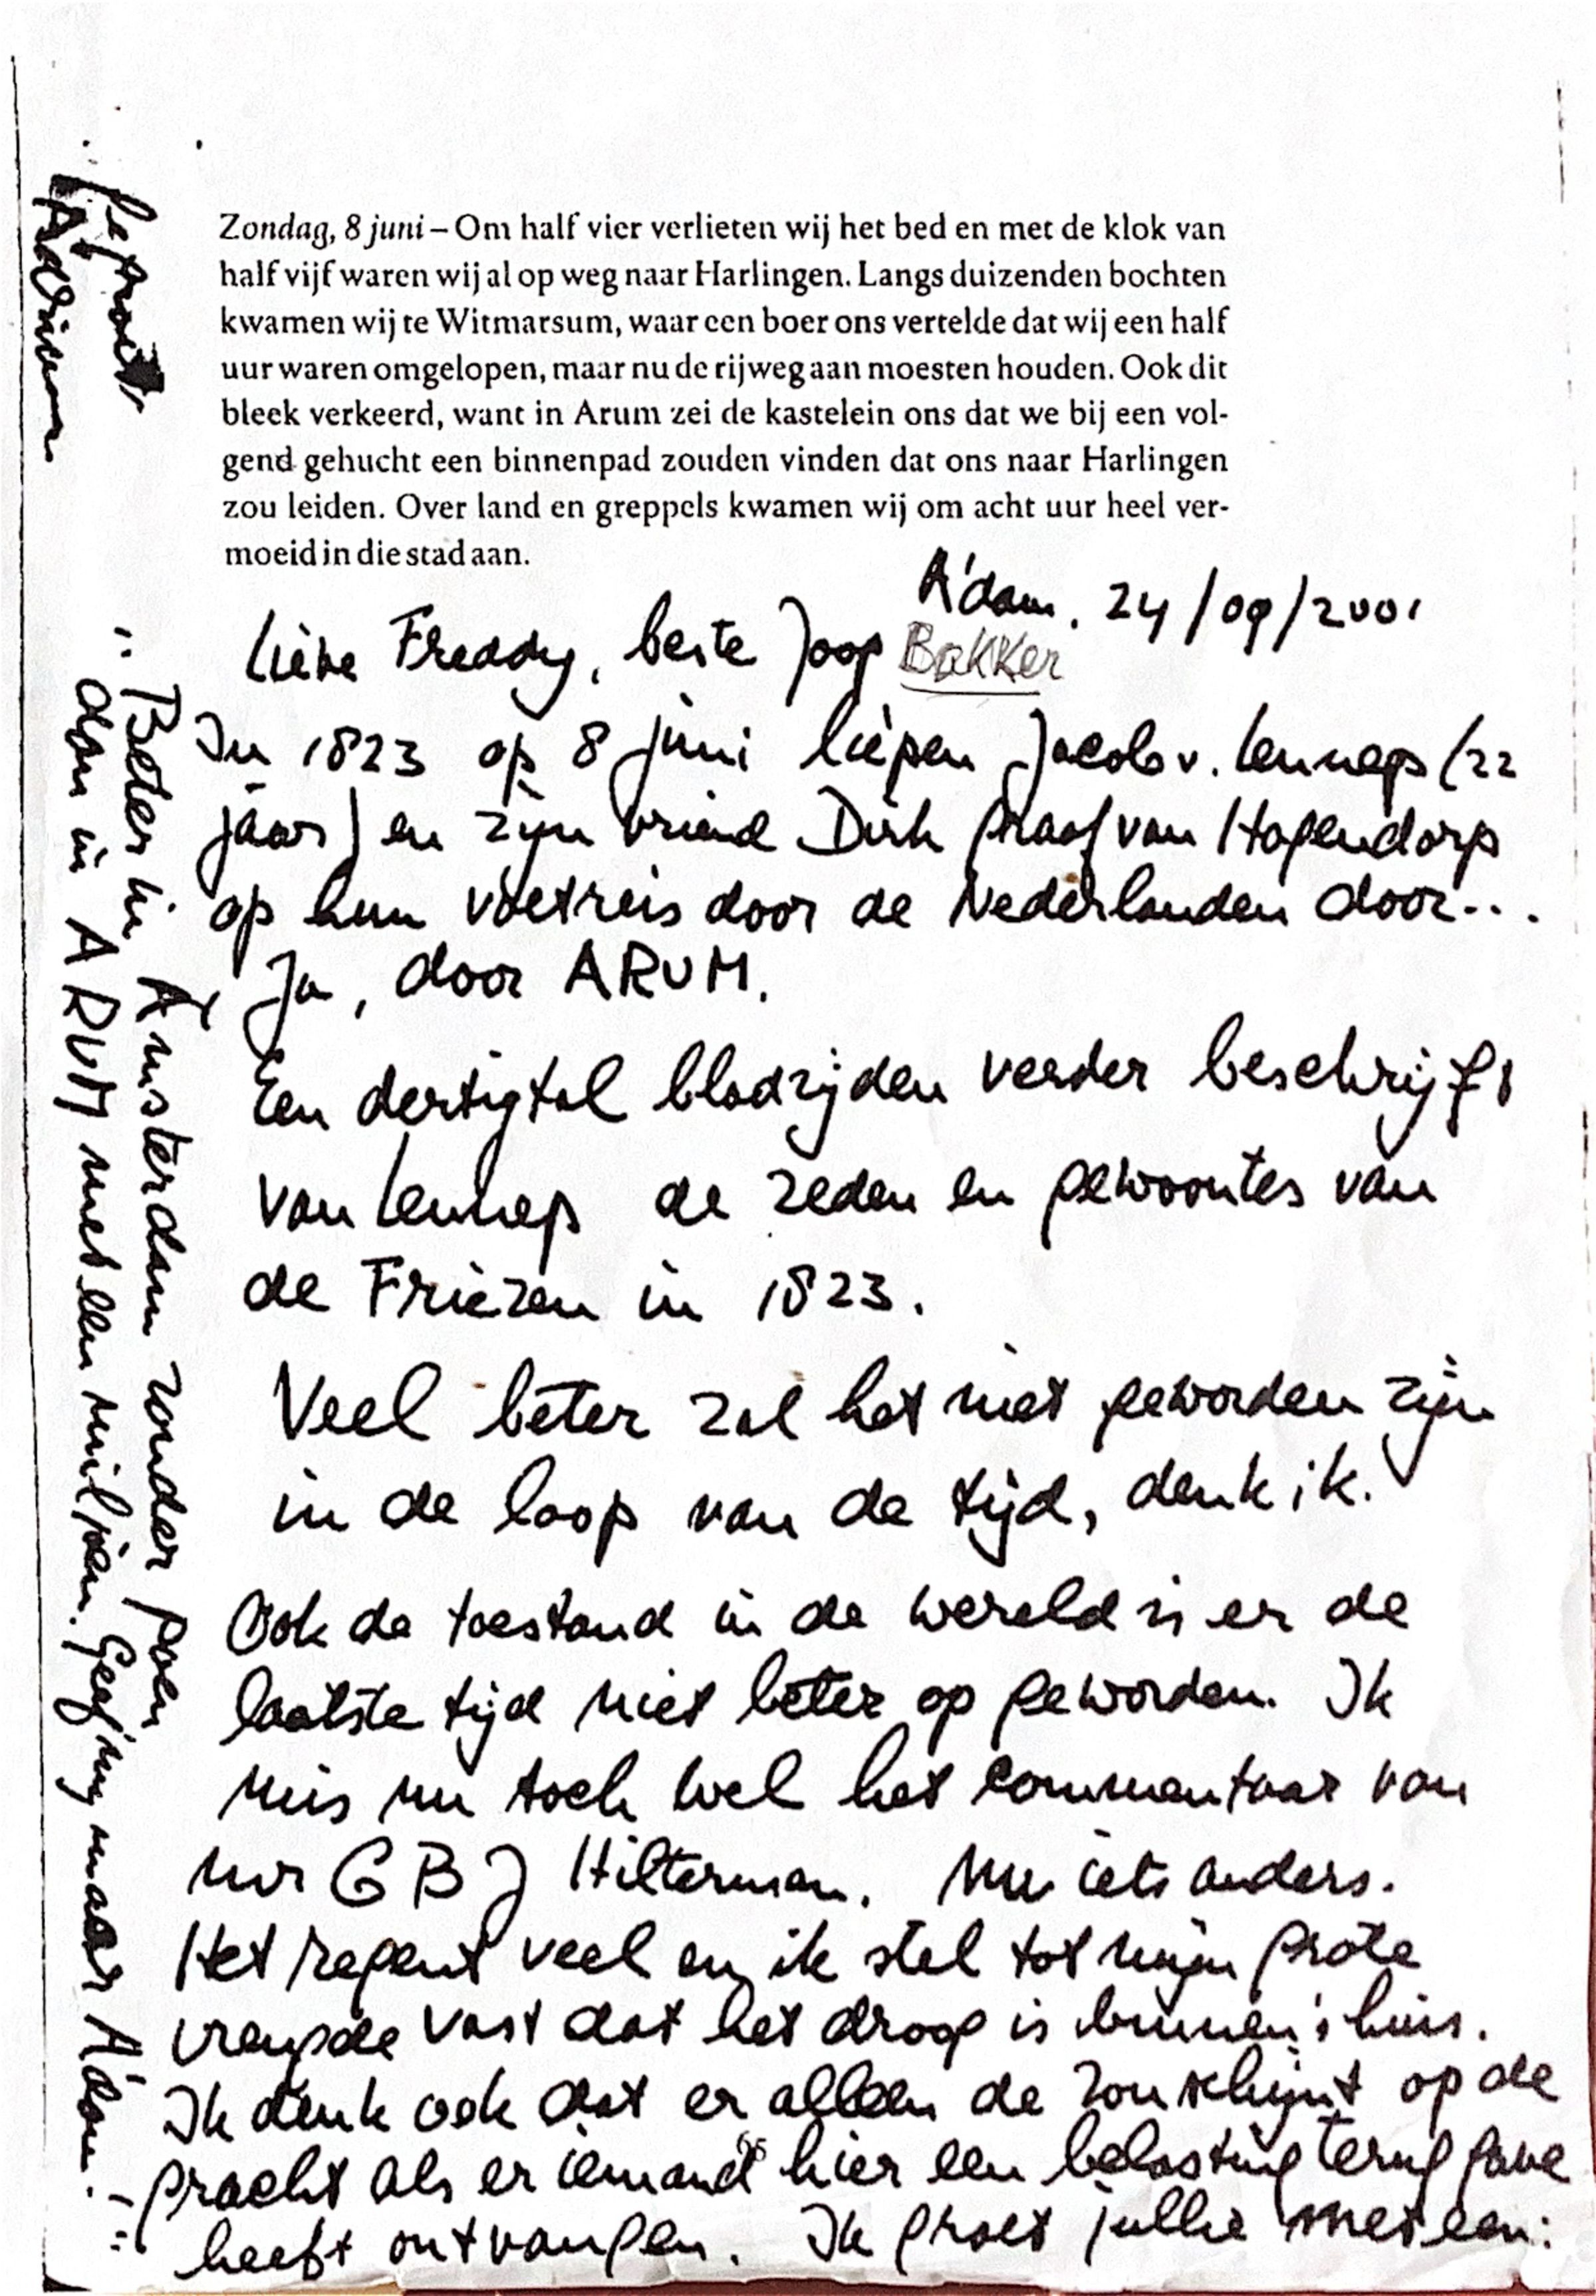 Zondag, 8 juni – Om half vier verlieten wij het bed en met de klok van
half vijf waren wij al op weg naar Harlingen. Langs duizenden bochten
kwamen wij te Witmarsum, waar een boer ons vertelde dat wij een half
uur waren omgelopen, maar nu de rijweg aan moesten houden. Ook dit
bleek verkeerd, want in Arum zei de kastelein ons dat we bij een vol-
gend gehucht een binnenpad zouden vinden dat ons naar Harlingen
zou leiden. Over land en greppels kwamen wij om acht uur heel ver-
moeid in die stad aan.
A'dam, 24/09/2001
Lieve Freddy, beste Joop Bakker
In 1823 op 8 juni liepen Jacob v. Lennep (22
jaar) en zijn vriend Dirk graaf van Hogendorp
op hun voetreis door de Nederlanden door...
Ja, door ARUM.
Een dertigtal bladzijden verder beschrijft
van Lennep de zeden en gewoontes van
de Friezen in 1823.
Veel beter zal het niet geworden zijn
in de loop van de tijd, denk ik.
Ook de toestand in de wereld is er de
laatste tijd niet beter op geworden. Ik
mis nu toch wel het commentaar van
mr G B J Hilterman. Nu iets anders.
Het regent veel en ik stel tot mijn grote
vreugde vast dat het droog is binnen's huis.
Ik denk ook dat er alleen de zon schijnt op de
gracht als er iemand hier een belasting teruggave
heeft ontvangen. Ik groet jullie met een:
" Beter in Amsterdam zonder poen
dan in ARUM met een miljoen. Geef mij maar A'dam. - "
gegroet
Adriaan